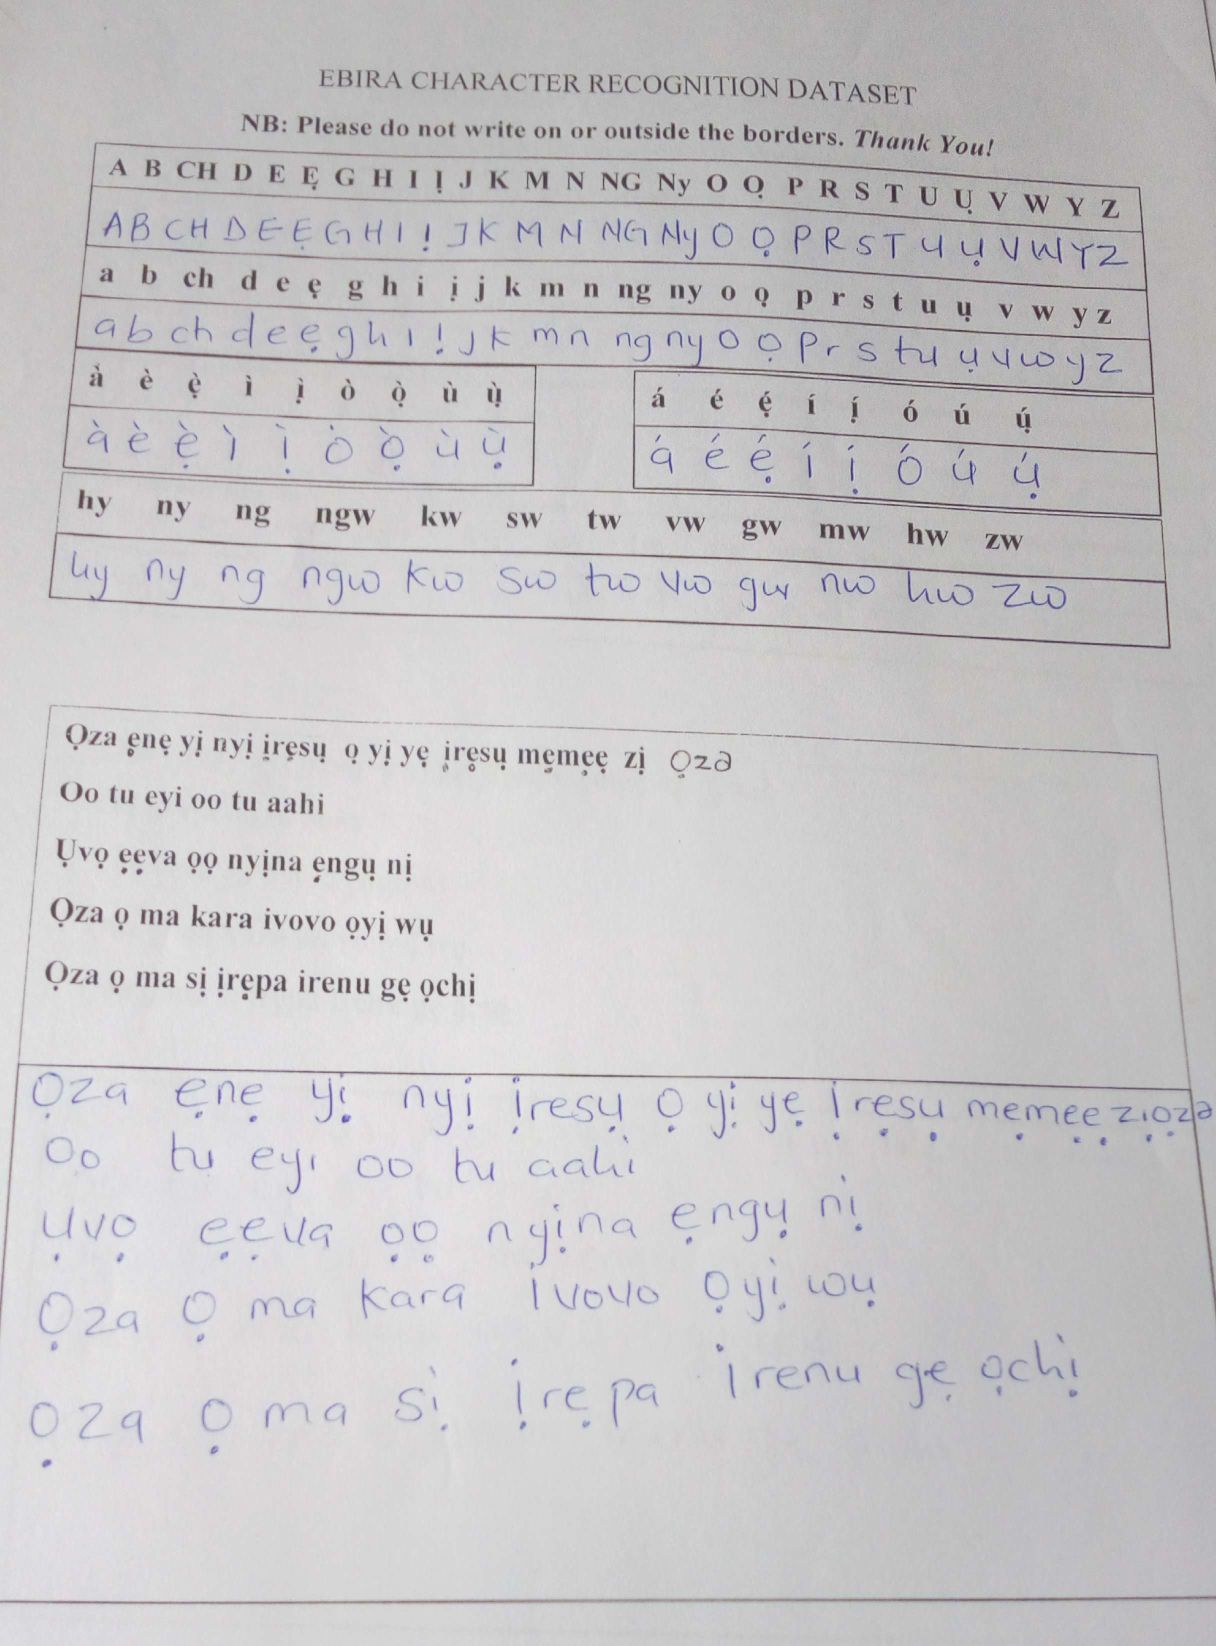 EBIRA CHARACTER RECOGNITION DATASET
NB: Please do not write on or outside the borders. Thank You!
A B CH D E Ẹ G H I Ị J K M N NG Ny O Ọ P R S T U Ụ V W Y Z
A B CH D E Ẹ G H I Ị J K M N NG Ny O Ọ P R S T U Ụ V W Y Z
a b ch d e ẹ g h i ị j k m n ng ny o ọ p r s t u ụ v w y z
a b ch d e ẹ g h i ị j k m n ng ny o ọ p r s t u ụ v w y z
à è ẹ̀ ì ị̀ ò ọ̀ ù ụ̀
á é ẹ́ í ị́ ó ú ụ́
à è ẹ̀ ì ị̀ ò ọ̀ ù ụ̀
á é ẹ́ í ị́ ó ú ụ́
hy ny ng ngw kw sw tw vw gw mw hw zw
hy ny ng ngw kw sw tw vw gw nw hw zw
Ọza ẹnẹ yị nyị ịrẹsụ ọ yị yẹ ịrẹsụ mẹmẹẹ zị Ọza
Oo tu eyi oo tu aahi
Ụvọ ẹẹva ọọ nyịna ẹngụ nị
Ọza ọ ma kara ivovo ọyị wụ
Ọza ọ ma sị ịrẹpa irenu gẹ ọchị
Ọza ẹnẹ yị nyị ịresụ Ọ yị yẹ ịrẹsụ mẹmẹẹ zịọza
Oo tu eyi oo tu aahi
Ụvọ ẹẹva ọọ nyịna ẹngụ nị
Ọza Ọ ma kara ivovo Ọyị wụ
Ọza Ọ ma sị ịrẹpa irenu gẹ ọchị